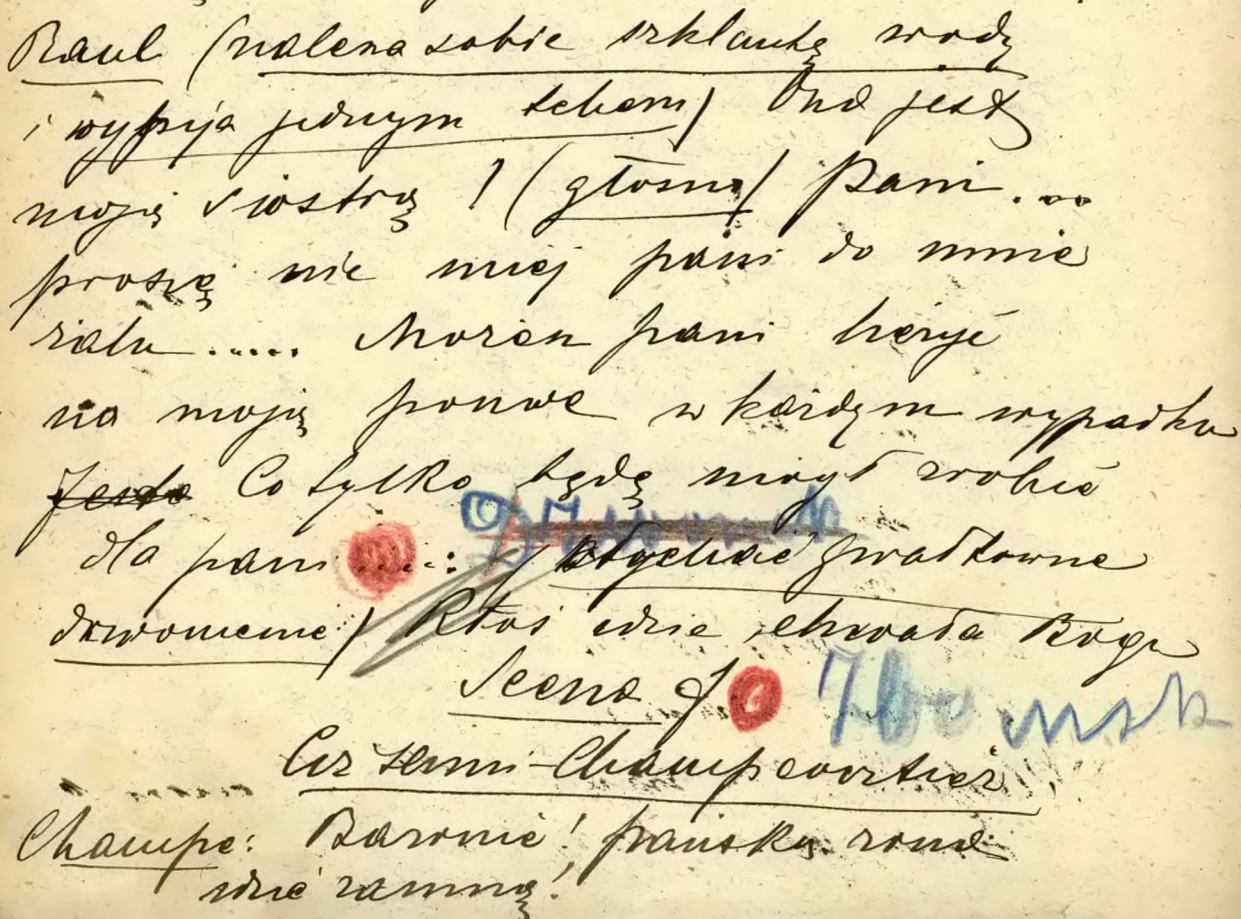 Raul (nalewa sobie szklankę wody
i wypija jednym tchem) Ona jest
moją siostrą! (głośno) Pani....
proszę nie miej pani do mnie
żalu..... Możesz pani liczyć
na moją pomoc w każdym wypadku
Jeste Co tylko będę mógł zrobić
Dzwonek
dla pani....: (słychać gwałtowne
dzwonienie) Ktoś idzie, chwała Bogu
Scena
Ciż sami - Champcourtier
Champc: Baronie! pańska żona
idzie zamną!